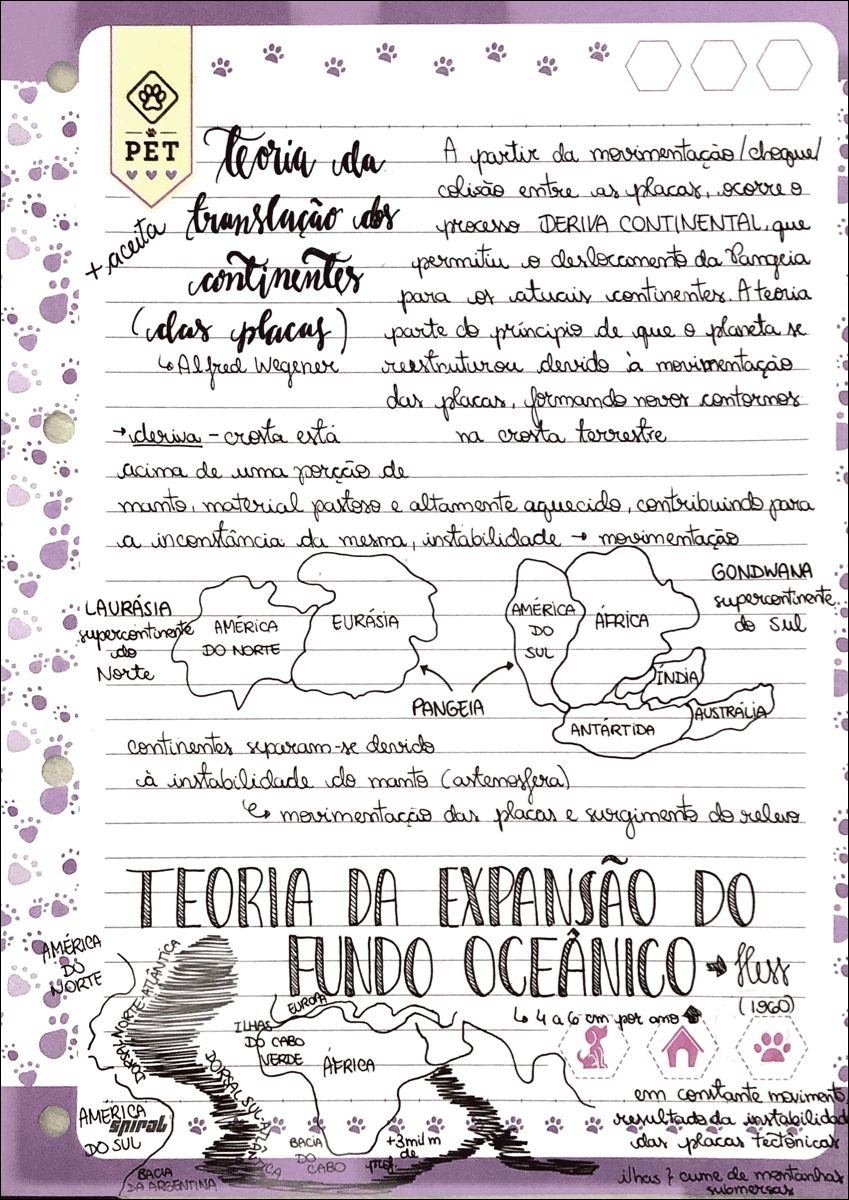 PET
Teoria da
translação dos
continentes
(das placas)
+ aceita
↳ Alfred Wegener
A partir da movimentação/choque/
colisão entre as placas, ocorre o
processo DERIVA CONTINENTAL, que
permitiu o deslocamento da Pangeia
para os atuais continentes. A teoria
parte do princípio de que o planeta se
reestruturou devido à movimentação
das placas, formando novos contornos
na crosta terrestre
→ deriva - crosta está
acima de uma porção de
manto, material pastoso e altamente aquecido, contribuindo para
a inconstância da mesma, instabilidade → movimentação
LAURÁSIA
supercontinente
do
Norte
AMÉRICA
DO NORTE
EURÁSIA
PANGEIA
AMÉRICA
DO
SUL
ÁFRICA
ÍNDIA
ANTÁRTIDA
AUSTRÁLIA
GONDWANA
supercontinente
do Sul
continentes separam-se devido
à instabilidade do manto (astenosfera)
↳ movimentação das placas e surgimento do relevo
TEORIA DA EXPANSÃO DO
FUNDO OCEÂNICO → Hess
(1960)
↳ 4 a 6 cm por ano
AMÉRICA
DO
NORTE
DORSAL NORTE-ATLÂNTICA
EUROPA
ILHAS
DO CABO
VERDE
ÁFRICA
DORSAL SUL-ATLÂNTICA
AMÉRICA
DO SUL
spiral
BACIA
DA ARGENTINA
BACIA
DO
CABO
+3mil m
de
prof.
em constante movimento
resultado da instabilidade
das placas tectônicas
ilhas } cume de montanhas
submersas